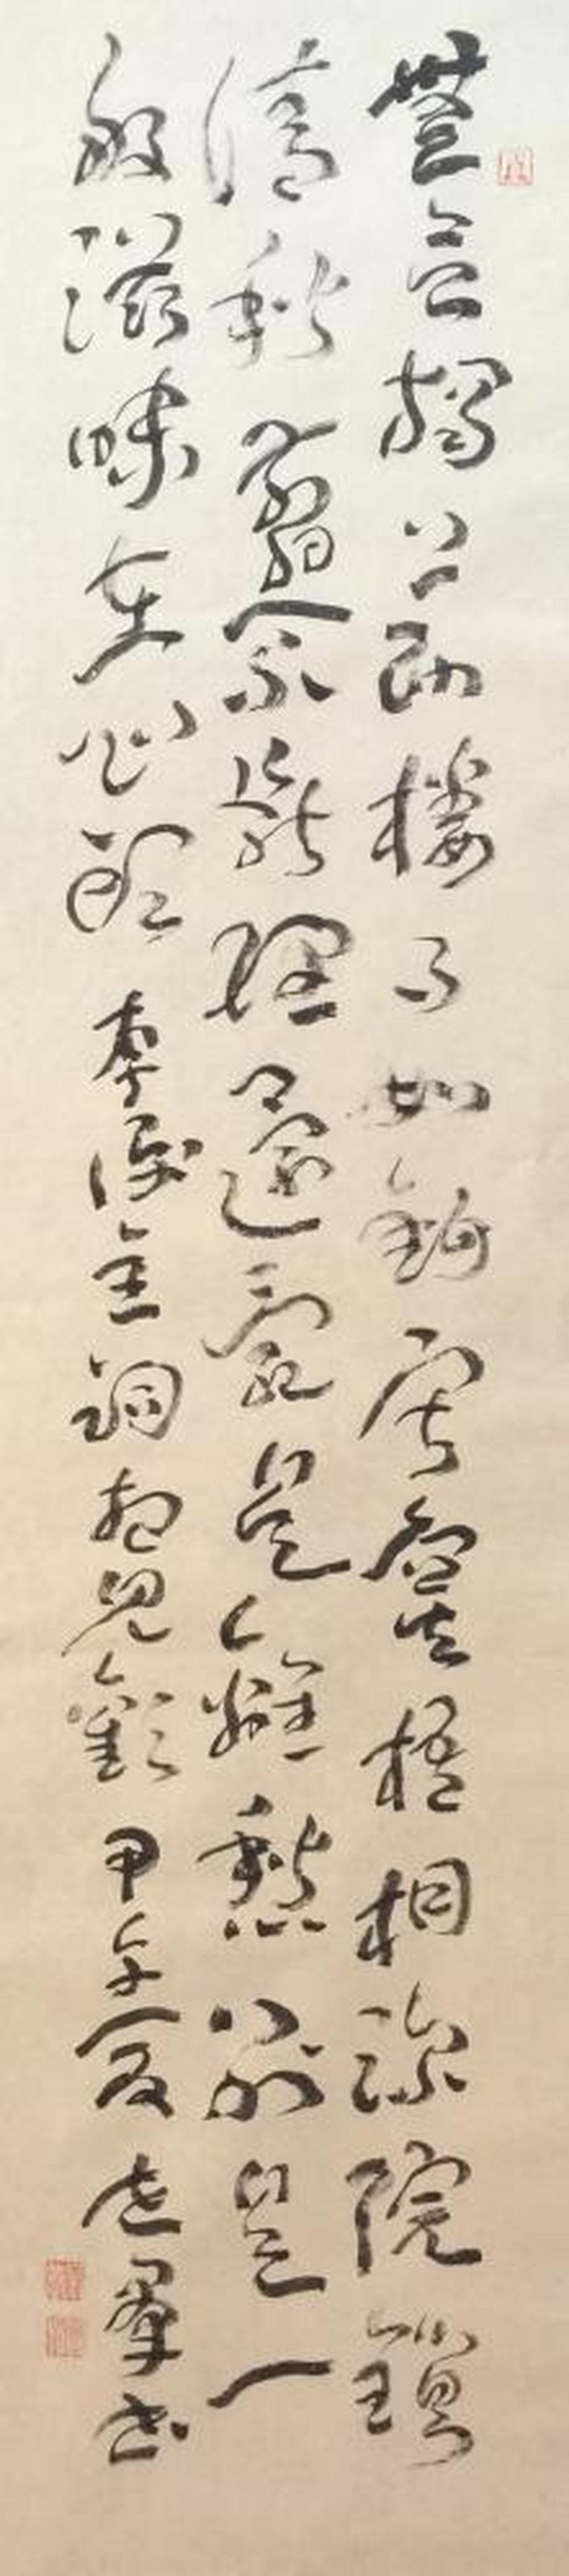 無言獨上西樓月如鈎寂寞梧桐深院鎖
清秋剪不斷理還亂是離愁別是一
般滋味在心頭 李後主詞相見歡 甲午夏 羣書